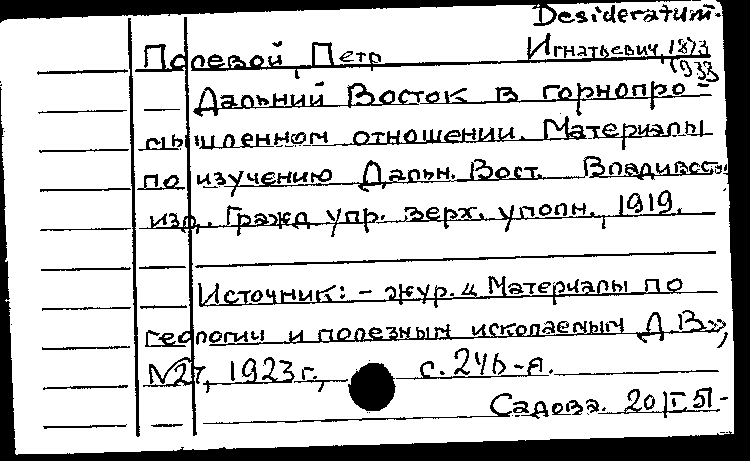 Desideratum.
Полевой, Петр Игнатьевич, 1873
1933
Дальний Восток в горнопро-
мышленном отношении. Материалы
по изучению Дальн. Вост. Владивосток
изд. Гражд упр. верх. уполн., 1919.
Источник: – жур. „Материалы по
геологии и полезным ископаемым Д.В»,
№27, 1923 г., с. 246-я.
Садова. 20/I 51-